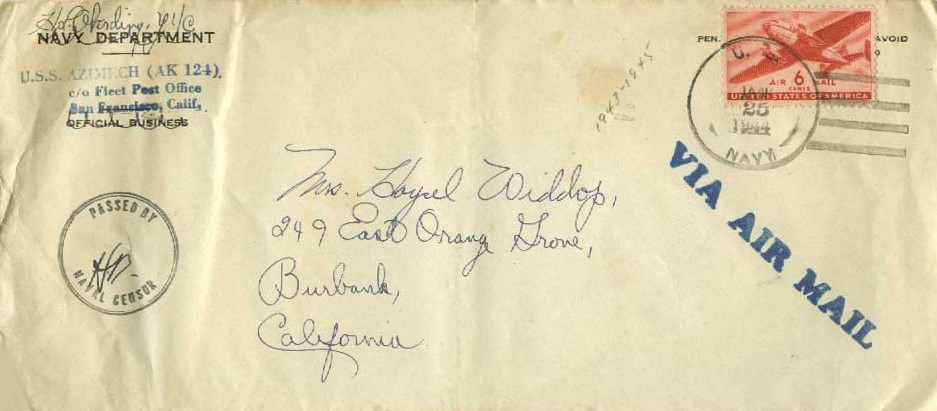 NAVY DEPARTMENT
U.S.S. AZIMECH (AK 124),
c/o Fleet Post Office
San Francisco, Calif.
OFFICIAL BUSINESS
PEN
AVOID
1943-1945
AIR 6 MAIL
CENTS
UNITED STATES OF AMERICA
U. S.
JAN
25
1944
NAVY
VIA AIR MAIL
PASSED BY
NAVAL CENSOR
Mrs. Hazel Widdop,
249 East Orange Grove,
Burbank,
California